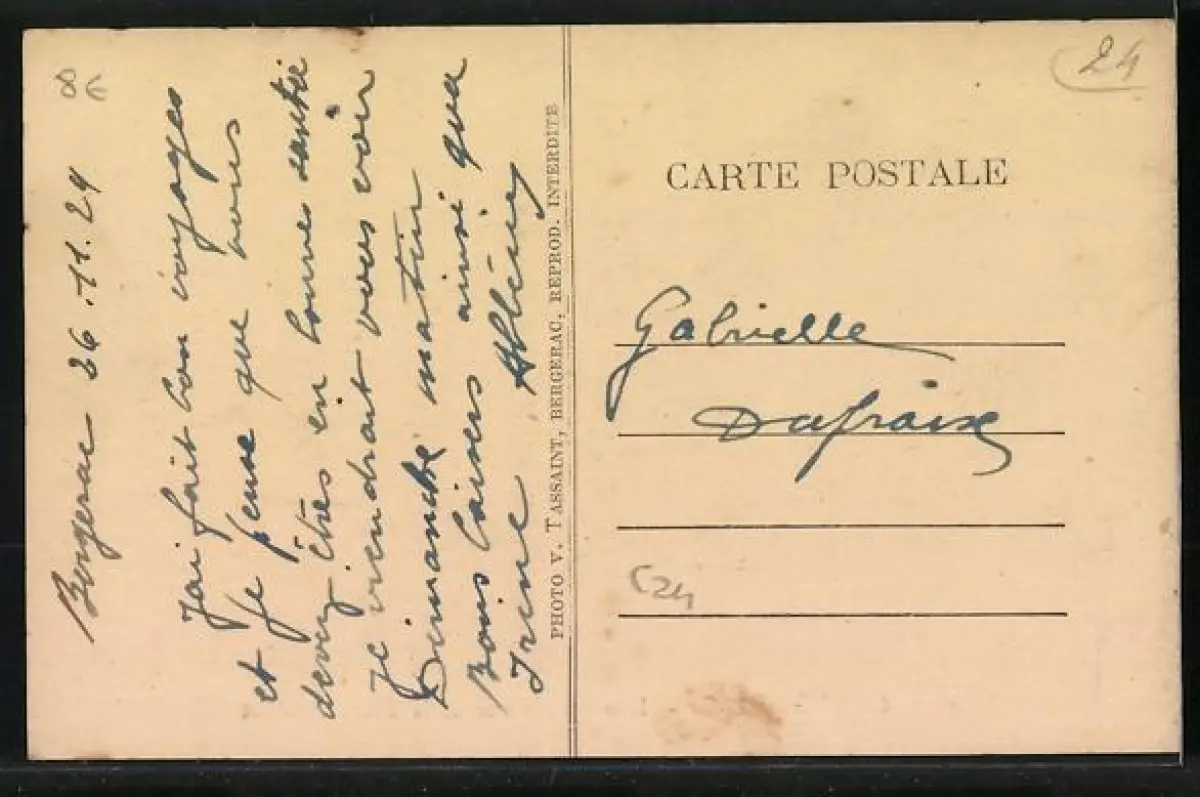 Bergerac 26.11.24
Jai fait bon voyages
et je pense que vous
devez êtres en bonnes santée
je viendrait vous voir
Dimanche matin
Bons baisers ainsi qua
Irene
PHOTO V. TASSAINT, BERGERAC, REPROD. INTERDITE
24
CARTE POSTALE
Gabrielle
Dufraixe
C24